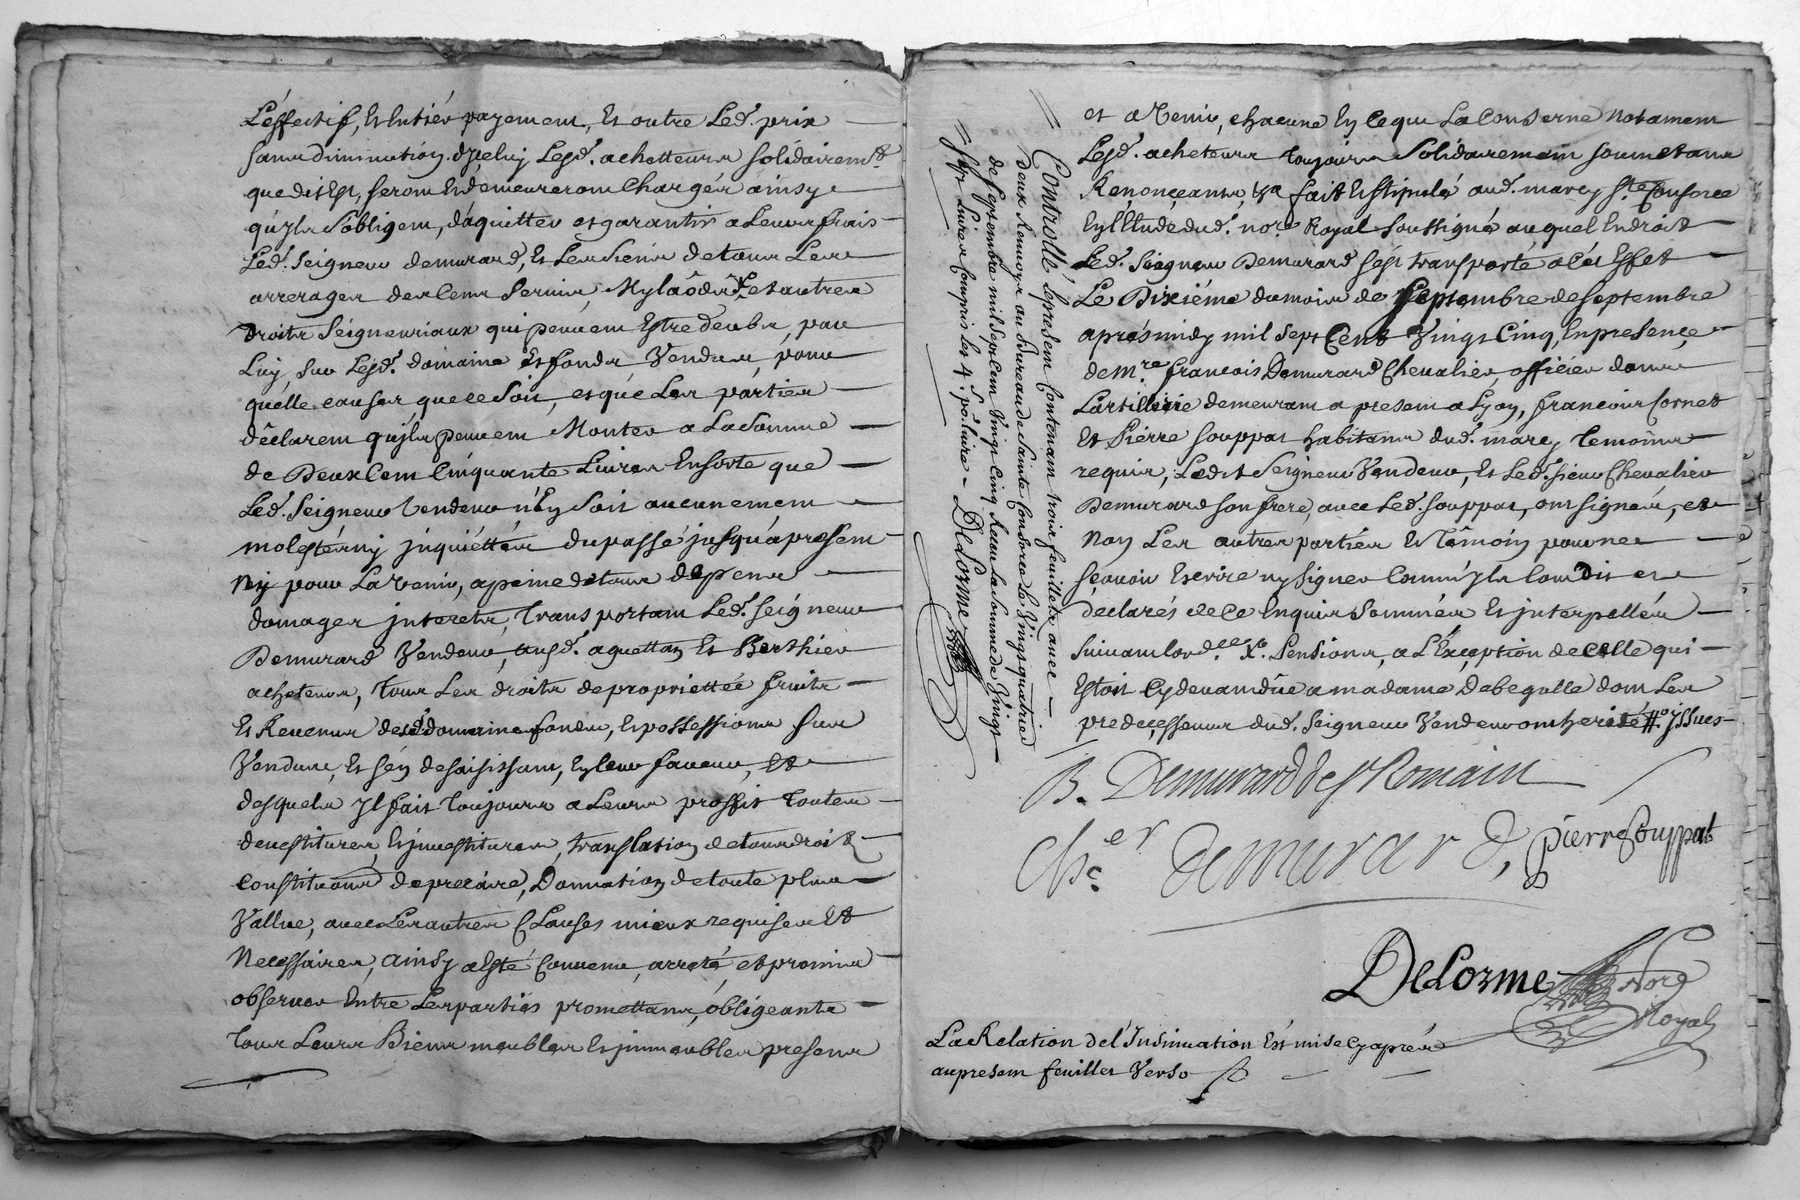 L'effectif, Et Entiér payement, Et outre Led. prix
sans diminution d'Jceluy Lesd. achetteurs solidairemt.
que dit Est, seront Et demeureront Chargés ainsy
qu'yls s'obligent, d'aquitter et garantir a Leurs frais
Led. Seigneur demurard, Et Les Siens de tous Les
arrerages des Cens Servis, My-laôds et autres
droits Seigneuriaux qui peuvent Estre deubs, par
Luy, sur Lesd. domaine Et fonds Vendus, pour
quelle cause que ce Soit, et que Les parties
déclarent qu'jls peuvent Monter a La Somme
de Deux Cent Cinquante Livres En sorte que
Led. Seigneur Vendeur n'Ey Soit aucunement
molestér ny jnquiéttér du passé jusqu'a present
Ny pour La Venir, a peine de tous depens
domages jnterets, Transportant Led. Seigneur
Demurard Vendeur, ausd. aguettan Et Berthier
acheteurs, Tous Les droits de propriettée fruits
Et Revenus desd. domaine fonds, Et possessions Sus
Vendus, Et s'én desaisissant, Ey leur faveur, Et
desquels Jl fait Toujours a Leurs proffit Toutes
devestitures, Et jnvestitures, translation de tous droits
Constitutions de precaire, Donnation de toute plus
Vallue, avec Les autres Clauses mieux requises Et
Necessaires, ainsy a Esté Convenu, arreté et promis
observer Entre Les parties promettans, obligeants
Tous Leurs Biens meubles Et jmmeubles presens
et a Venir, chacune Ey ce que La Conserne Notament
Lesd. acheteurs Toujours Solidairement soumetans
Renonçeants, &a fait Et Stipulé aud. marcy Ste. Consorce
Ey L'Etude dud. nore. Royal Soussigné auquel Endroit
Led. Seigneur Demurard s'est transporté a cét Effet
Le Dixiéme du mois de Septembre de Septembre
aprés midy mil Sept Cent Vingt Cinq, En presençe
de Mre. francois Demurard Chevalier, officier dans
L'artillerie demeurant a present a Lyon, francois Cornet
Et Pierre Souppat habitans dud. marcy Temoins
requis, Ledit Seigneur Vendeur, Et Led. Sieur Chevalier
Demurard son frere, avec Led. Souppat, ont signé, et
Non Les autres parties Et Témoin pour ne
sçavoir Escrire ny signer Comm'jls L'ont Dit et
déclarés de ce Enquis Sommés Et jnterpellés
Suivant L'ord.ce Xo. Pensions, a L'Exception de celle qui
Estoit Cy devant dûe a madame Debegulle dont Les
predecesseurs dud. Seigneur Vendeur ont herité #o. jssues
Controllé Le present Contenant trois feuillets avec
deux Renvoys au Bureau de Sainte Consorce Le Vingt quatrieé
de Septembre mil Sept Cent Vingt Cinq Reçu La Somme de Vingt
Sept Livres Compris Les 4. s. p. Livre - DeLorme
B. Demurard de St Romain
Cher. demurard, pierre Souppat
DeLorme Nore
Royal
La Relation de l'Insinuation Est mise Cy aprés
au present feuillet Verso